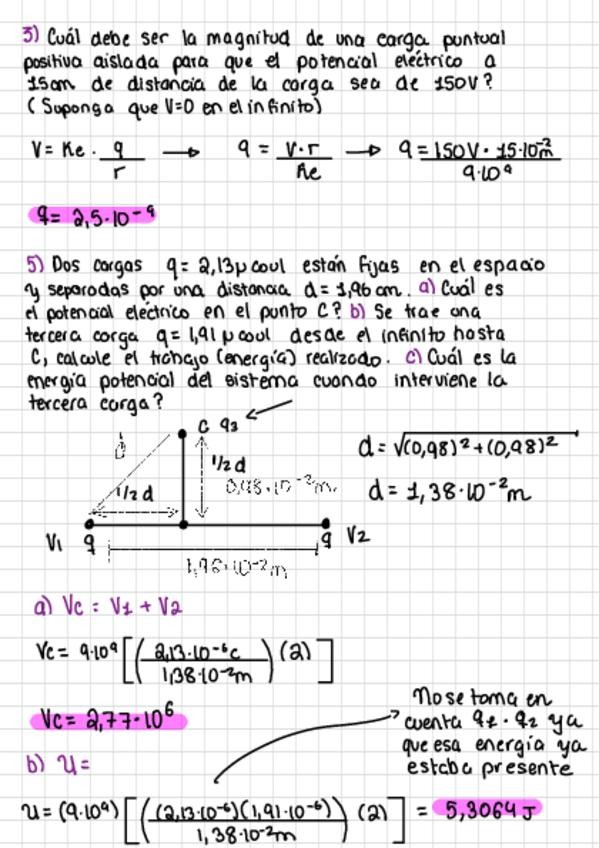 3) Cuál debe ser la magnitud de una carga puntual
positiva aislada para que el potencial eléctrico a
15cm de distancia de la carga sea de 150V?
(Suponga que V=0 en el infinito)
V= Ke · q/r → q = V·r/Ke → q = 150V · 15·10⁻²m/9·10⁹
q= 2,5·10⁻⁹
5) Dos cargas q= 2,13μcoul están fijas en el espacio
y separadas por una distancia d= 1,96 cm. a) Cuál es
el potencial eléctrico en el punto C? b) Se trae una
tercera carga q= 1,91 μcoul desde el infinito hasta
C, calcule el trabajo (energía) realizado. c) Cuál es la
energía potencial del sistema cuando interviene la
tercera carga?
C q3
d = √(0,98)²+(0,98)²
1/2 d
0,98·10⁻²m
d = 1,38·10⁻²m
1/2 d
V1 q
q V2
1,96·10⁻²m
a) Vc = V1 + V2
Vc = 9·10⁹ [(2,13·10⁻⁶c/1,38·10⁻²m)(2)]
Vc= 2,77·10⁶
No se toma en
cuenta q1 · q2 ya
que esa energía ya
estaba presente
b) U=
U= (9·10⁹) [((2,13·10⁻⁶)(1,91·10⁻⁶)/1,38·10⁻²m)(2)] = 5,3064 J